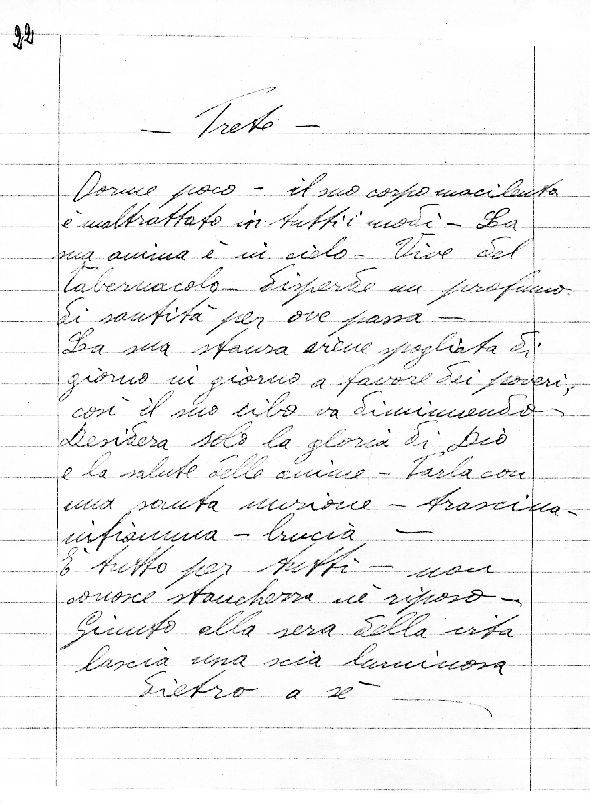 22
— Prete —
Dorme poco – il suo corpo macilento
è maltrattato in tutti i modi – La
sua anima è in cielo – Vive del
Tabernacolo – disperde un profumo
di santità per ove passa –
La sua stanza viene spogliata di
giorno in giorno a favore dei poveri,
così il suo cibo va diminuendo –
Desidera solo la gloria di Dio
e la salute delle anime – Parla con
una santa unzione – trascina –
infiamma – brucia —
È tutto per tutti – non
conosce stanchezza nè riposo –
Giunto alla sera della vita
lascia una scia luminosa
dietro a sè —